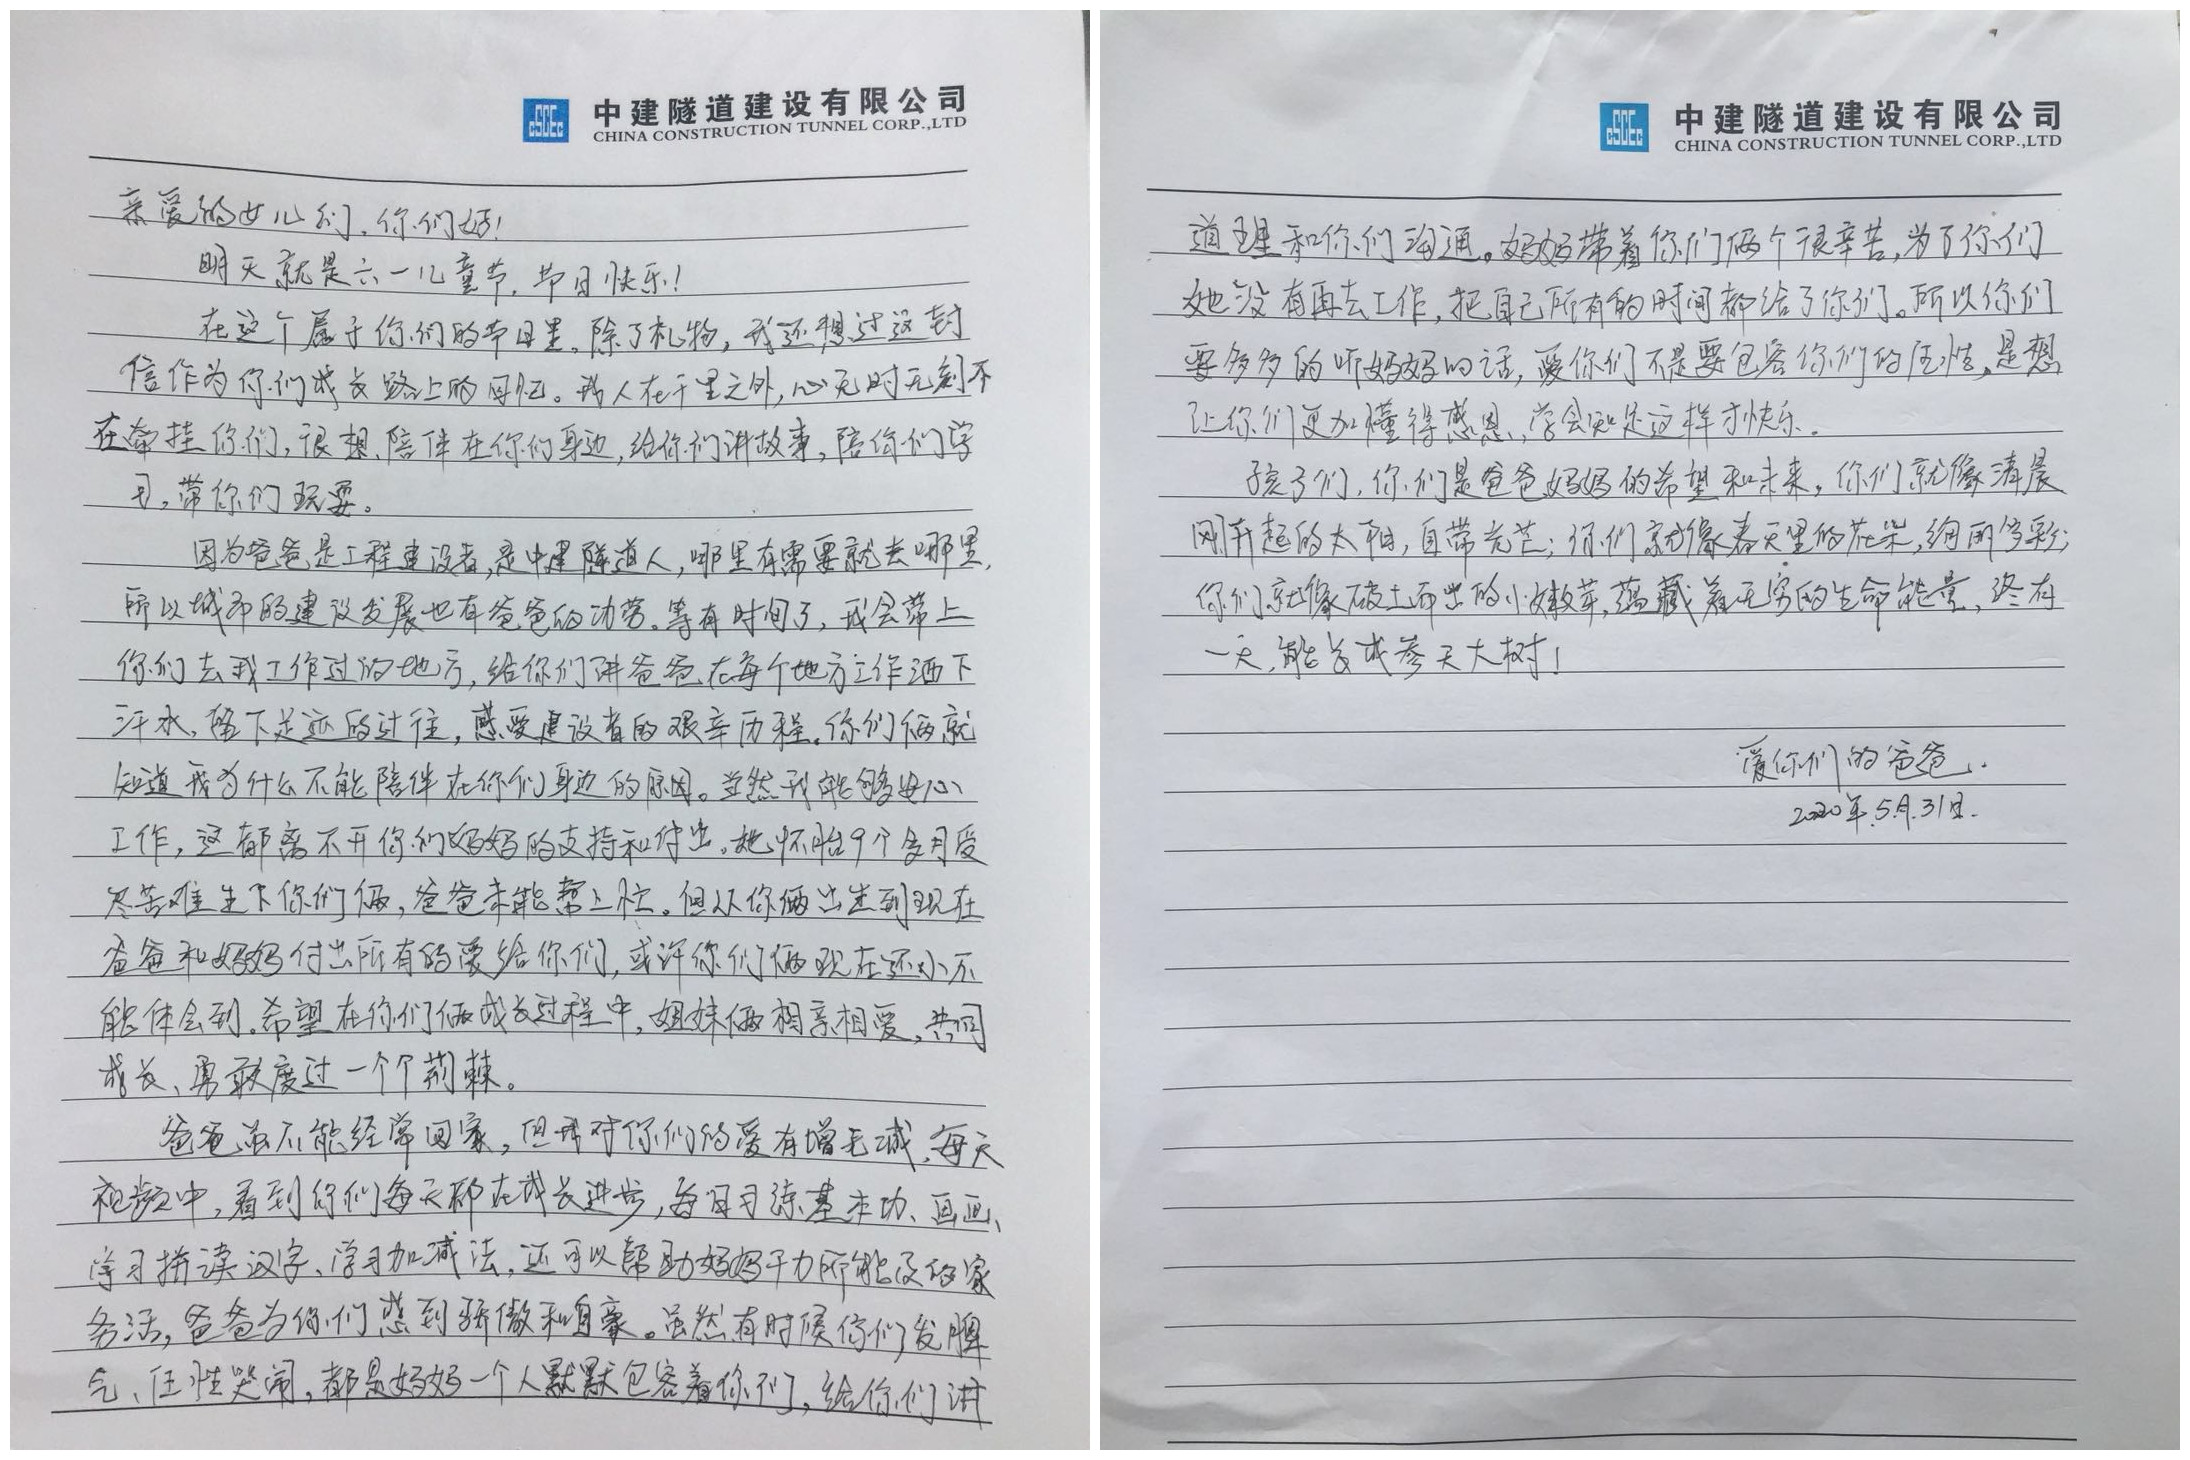 中建隧道建设有限公司
CHINA CONSTRUCTION TUNNEL CORP.,LTD
亲爱的女儿们,你们好!
明天就是六一儿童节,节日快乐!
在这个属于你们的节日里,除了礼物,我还想过这封
信作为你们成长路上的回忆。我人在千里之外,心无时无刻不
在牵挂你们,很想陪伴在你们身边,给你们讲故事,陪你们学
习,带你们玩耍。
因为爸爸是工程建设者,是中建隧道人,哪里有需要就去哪里,
所以城市的建设发展也有爸爸的功劳。等有时间了,我会带上
你们去我工作过的地方,给你们讲爸爸在每个地方工作洒下
汗水,留下足迹的过往,感受建设者的艰辛历程。你们俩就
知道我为什么不能陪伴在你们身边的原因。当然我能够安心
工作,这都离不开你们妈妈的支持和付出。她怀胎9个多月受
尽苦难生下你们俩,爸爸未能帮上忙。但从你俩出生到现在
爸爸和妈妈付出所有的爱给你们,或许你们俩现在还小不
能体会到。希望在你们俩成长过程中,姐妹俩相亲相爱,共同
成长、勇敢度过一个个荆棘。
爸爸虽不能经常回家,但我对你们的爱有增无减,每天
视频中,看到你们每天都在成长进步,每日习练基本功、画画、
学习拼读汉字、学习加减法,还可以帮助妈妈干力所能及的家
务活,爸爸为你们感到骄傲和自豪。虽然有时候你们发脾
气、任性哭闹,都是妈妈一个人默默包容着你们,给你们讲
中建隧道建设有限公司
CHINA CONSTRUCTION TUNNEL CORP.,LTD
道理和你们沟通。妈妈带着你们俩个很辛苦,为了你们
她没有再去工作,把自己所有的时间都给了你们。所以你们
要多多的听妈妈的话,爱你们不是要包容你们的任性,是想
让你们更加懂得感恩,学会知足这样才快乐.
孩子们,你们是爸爸妈妈的希望和未来,你们就像清晨
刚升起的太阳,自带光芒;你们就像春天里的花朵,绚丽多彩;
你们就像破土而出的小嫩芽,蕴藏着无穷的生命能量,终有
一天,能长成参天大树!
爱你们的爸爸.
2020年.5月.31日.